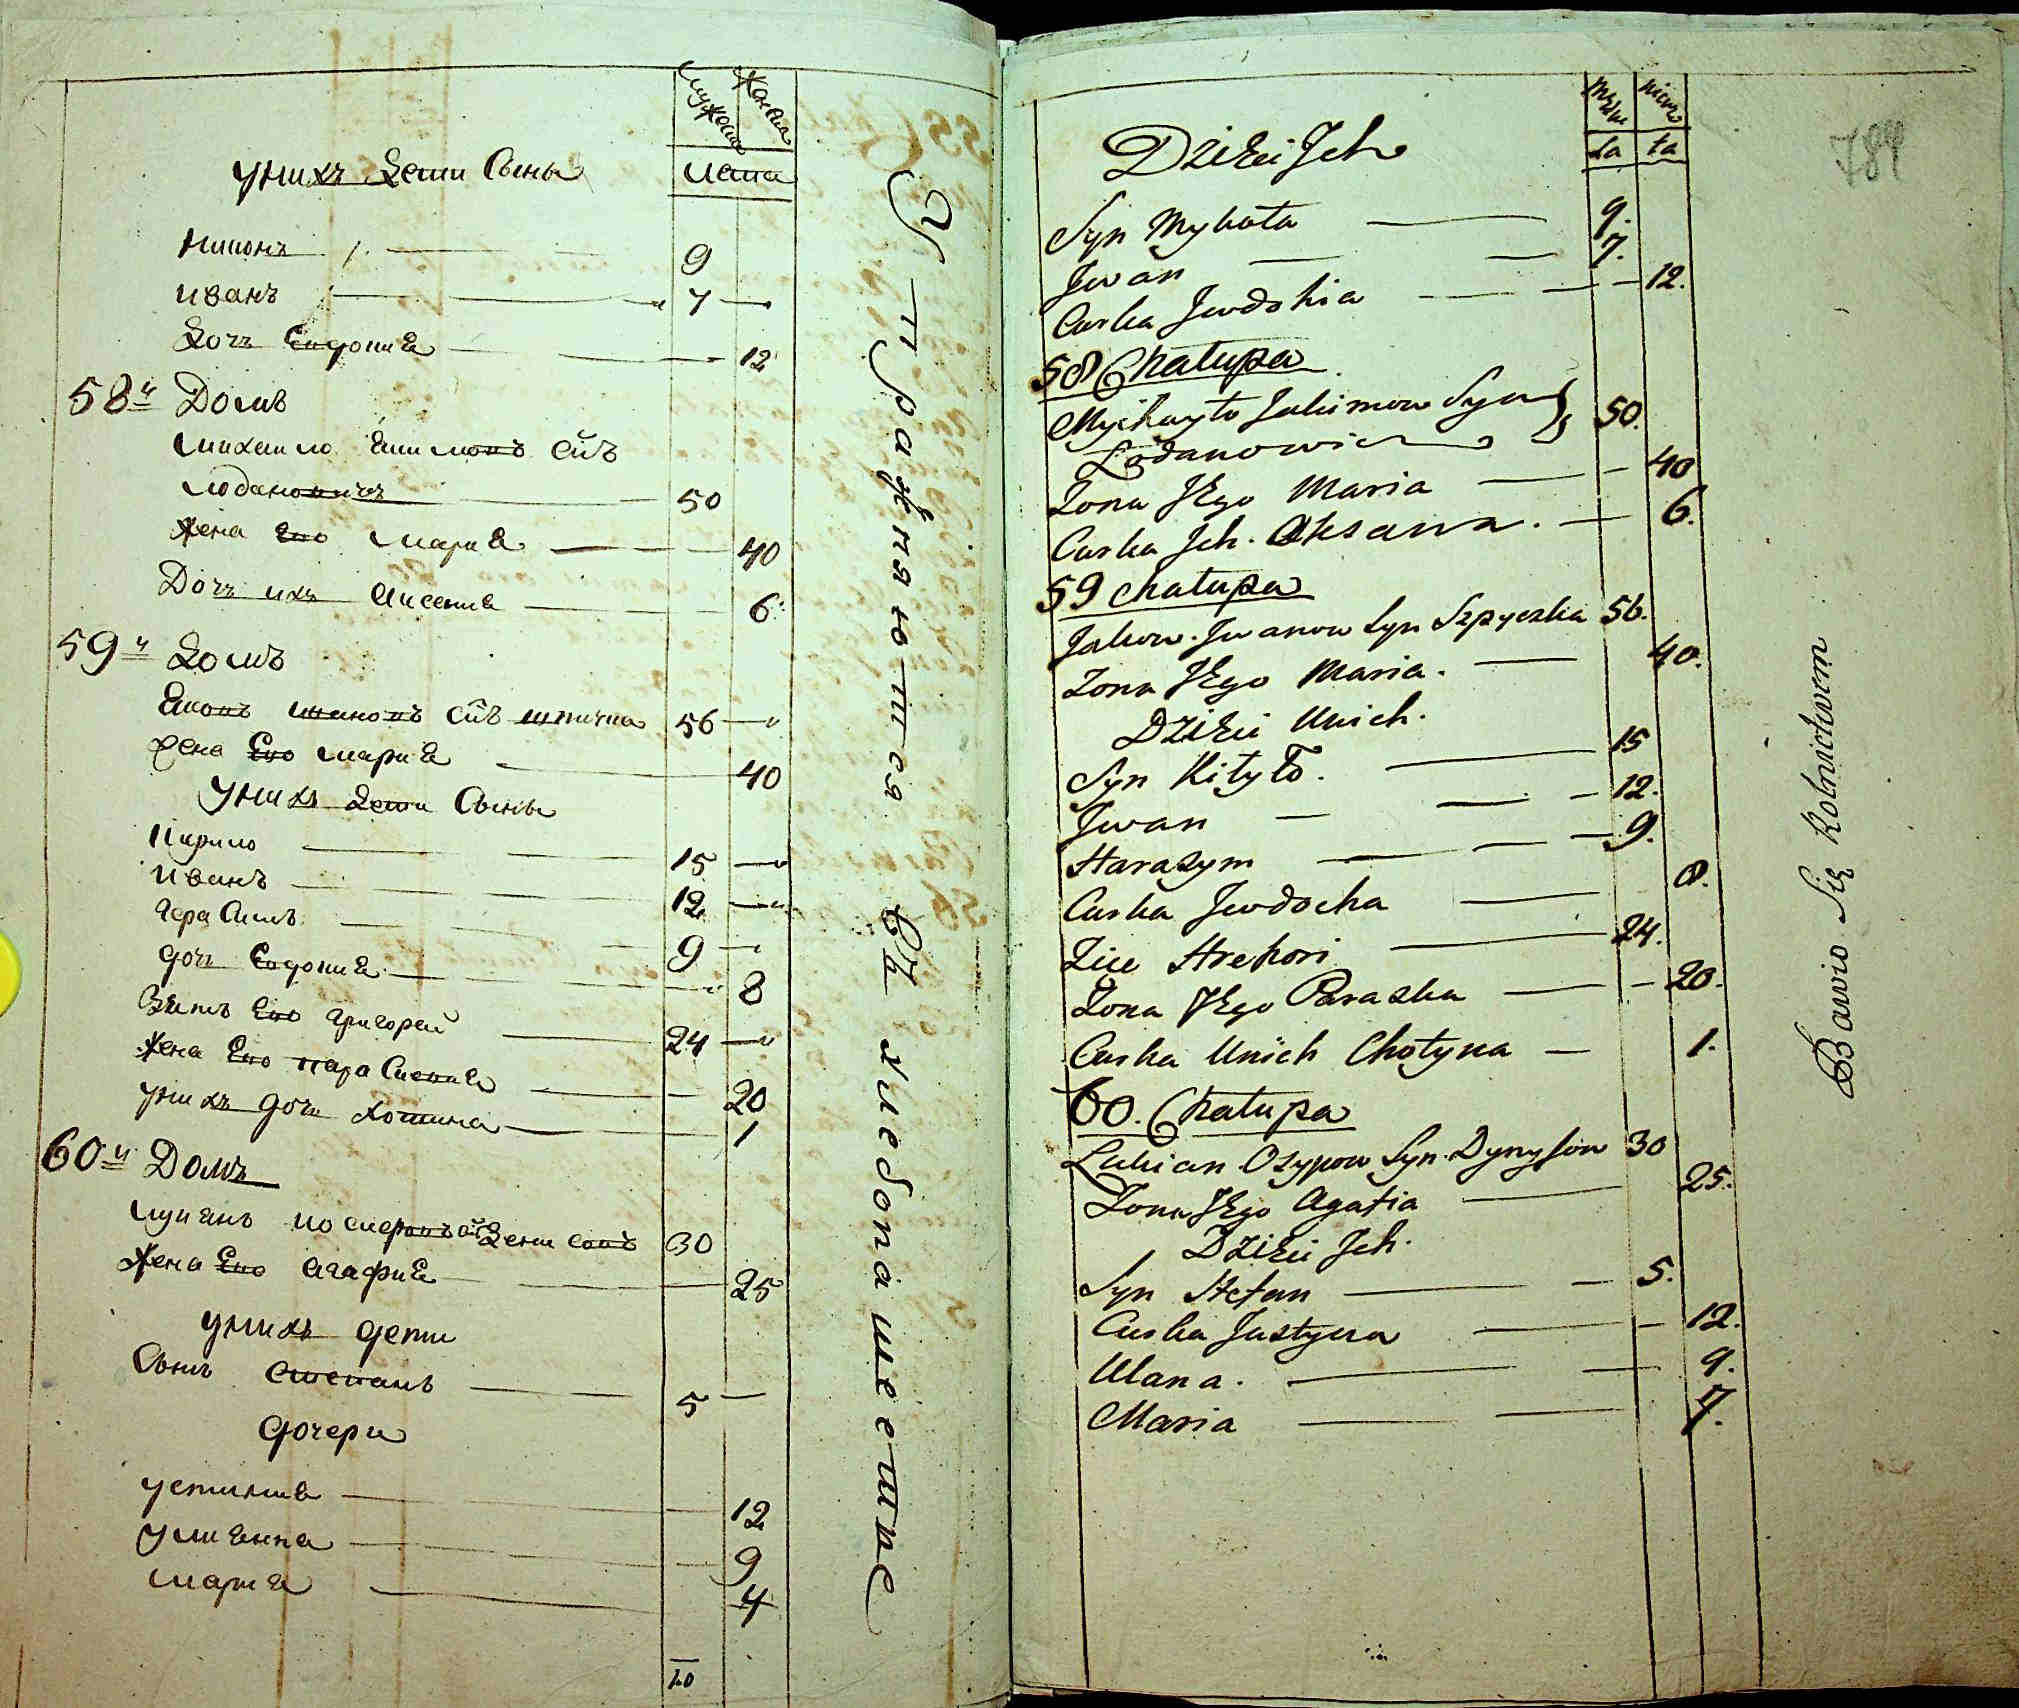 мужеска
женска
лета
у них дети Сыны
Никонъ 9
иванъ 7
Дочъ Евдокия 12
58й Домъ
михаило Якимовъ сынъ
лоданович 50
жена Его мария 40
Дочъ ихъ Аксения 6
59й Домъ
Яковъ ивановъ сынъ шпичка 56
жена Его мария 40
у них дети Сыны
Кирило 15
иванъ 12
герасимъ 9
дочъ Евдокия 8
Зять Его григорей 24
жена Его параскевия 20
у нихъ дочъ хотина 1
60й Домъ
лукянъ иосифовъ сынъ Денисовъ 30
жена Его агафия 25
у нихъ дети
Сынъ степанъ 5
дочери
устиния 12
улиянна 9
мария 4
10
Упражняются въ хлебопашестве
784
Męzka nicz
La ta
Dzieci Jch
Syn Mykoła 9.
Jwan 7.
Curka Jewdokia 12.
58 Chałupa
Mychayło Jakimow Syn
Łodanowicz 50.
Zona Jego Maria 40
Curka Jch. Oksanna. 6.
59 chałupa
Jakow. Jwanow Syn Szpyczka 56.
Zona Jego Maria. 40.
Dzieci Unich.
Syn Kiryło. 15
Jwan 12.
Harasym 9.
Curka Jewdocha 8.
Zieć Hrehori 24.
Zona Jego Paraska 20.
Curka Unich Chotyna 1.
60. Chałupa
Lukian Osypow Syn. Dynysow 30
Zona Jego Agafia 25.
Dzieci Jch.
Syn Stefan 5.
Curka Justyna 12.
Ulana. 9.
Maria 7.
Bawio Się Rolnictwem